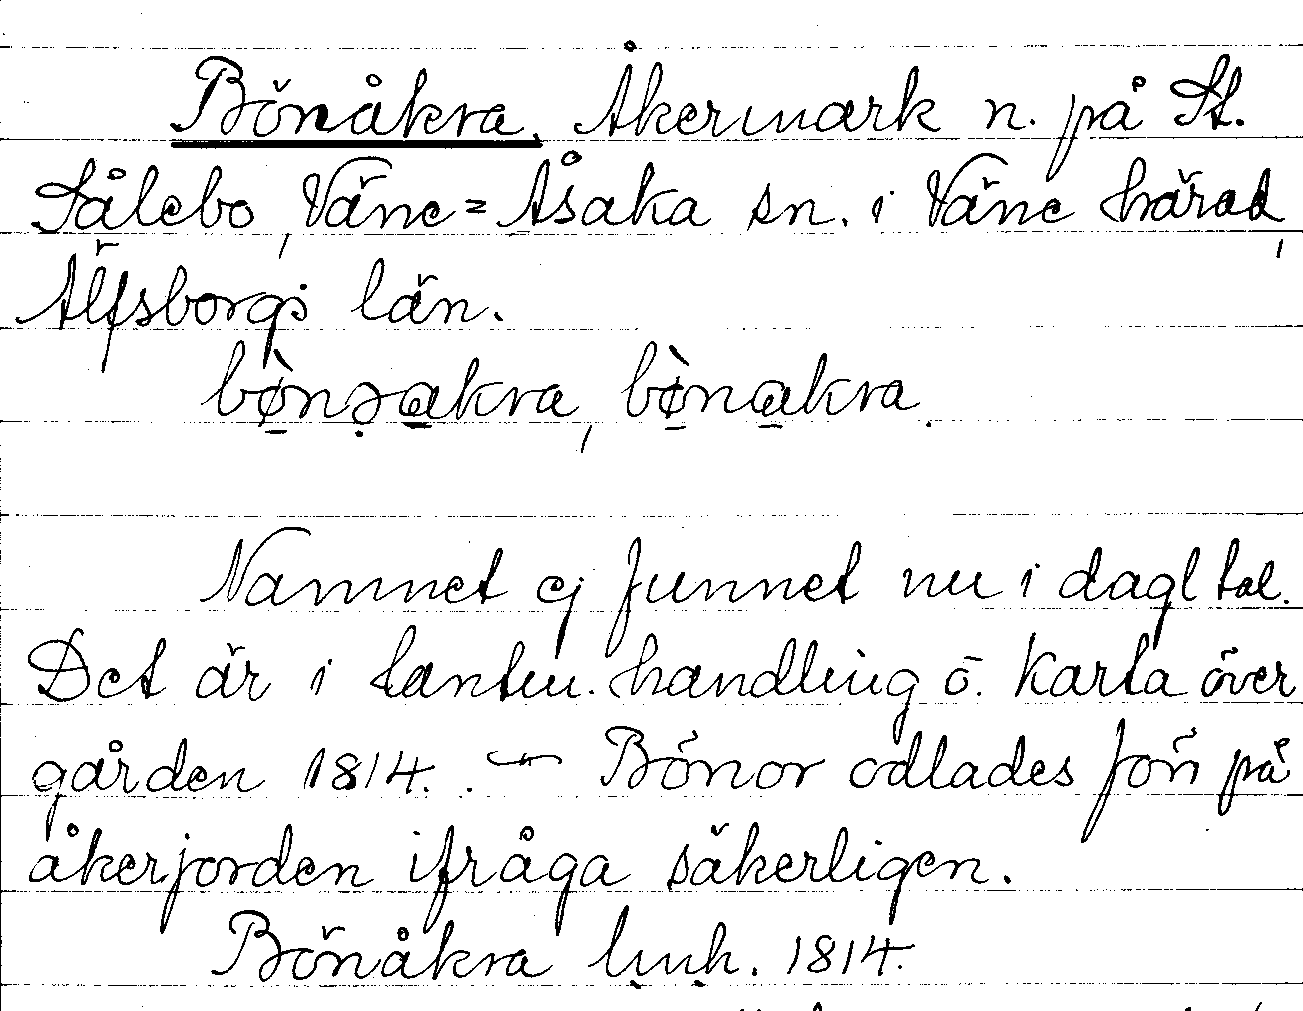 Bönåkra. Åkermark n. på St.
Sålebo, Väne=Åsaka sn. i Väne härad,
Älfsborgs län.
bø̀nsakra, bø̀nakra.
Namnet ej funnet nu i dagl tal.
Det är i lantm. handling o. karta över
gården 1814. — Bönor odlades förr på
åkerjorden ifråga säkerligen.
Bönåkra lmh. 1814.